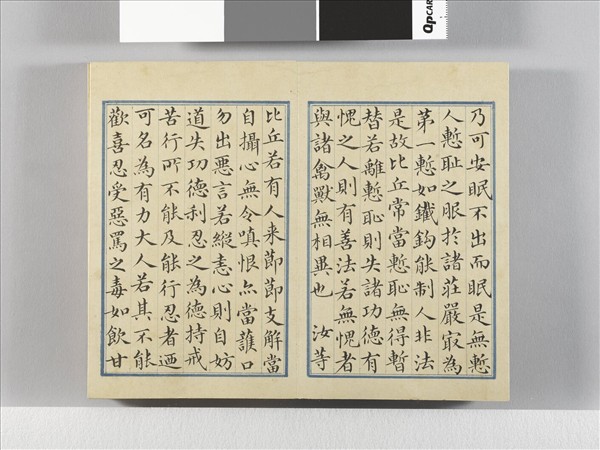 乃可安眠不出而眠是無慙
人慙耻之服於諸莊嚴㝡為
第一慙如鐵鈎能制人非法
是故比丘常當慙恥無得暫
替若離慙恥則失諸功德有
愧之人則有善法若無愧者
與諸禽獸無相異也 汝等
比丘若有人来節節支解當
自攝心無令嗔恨亦當護口
勿出悪言若縱恚心則自妨
道失功德利忍之為德持戒
苦行所不能及能行忍者迺
可名為有力大人若其不能
歡喜忍受惡罵之毒如飲甘
QpCAR